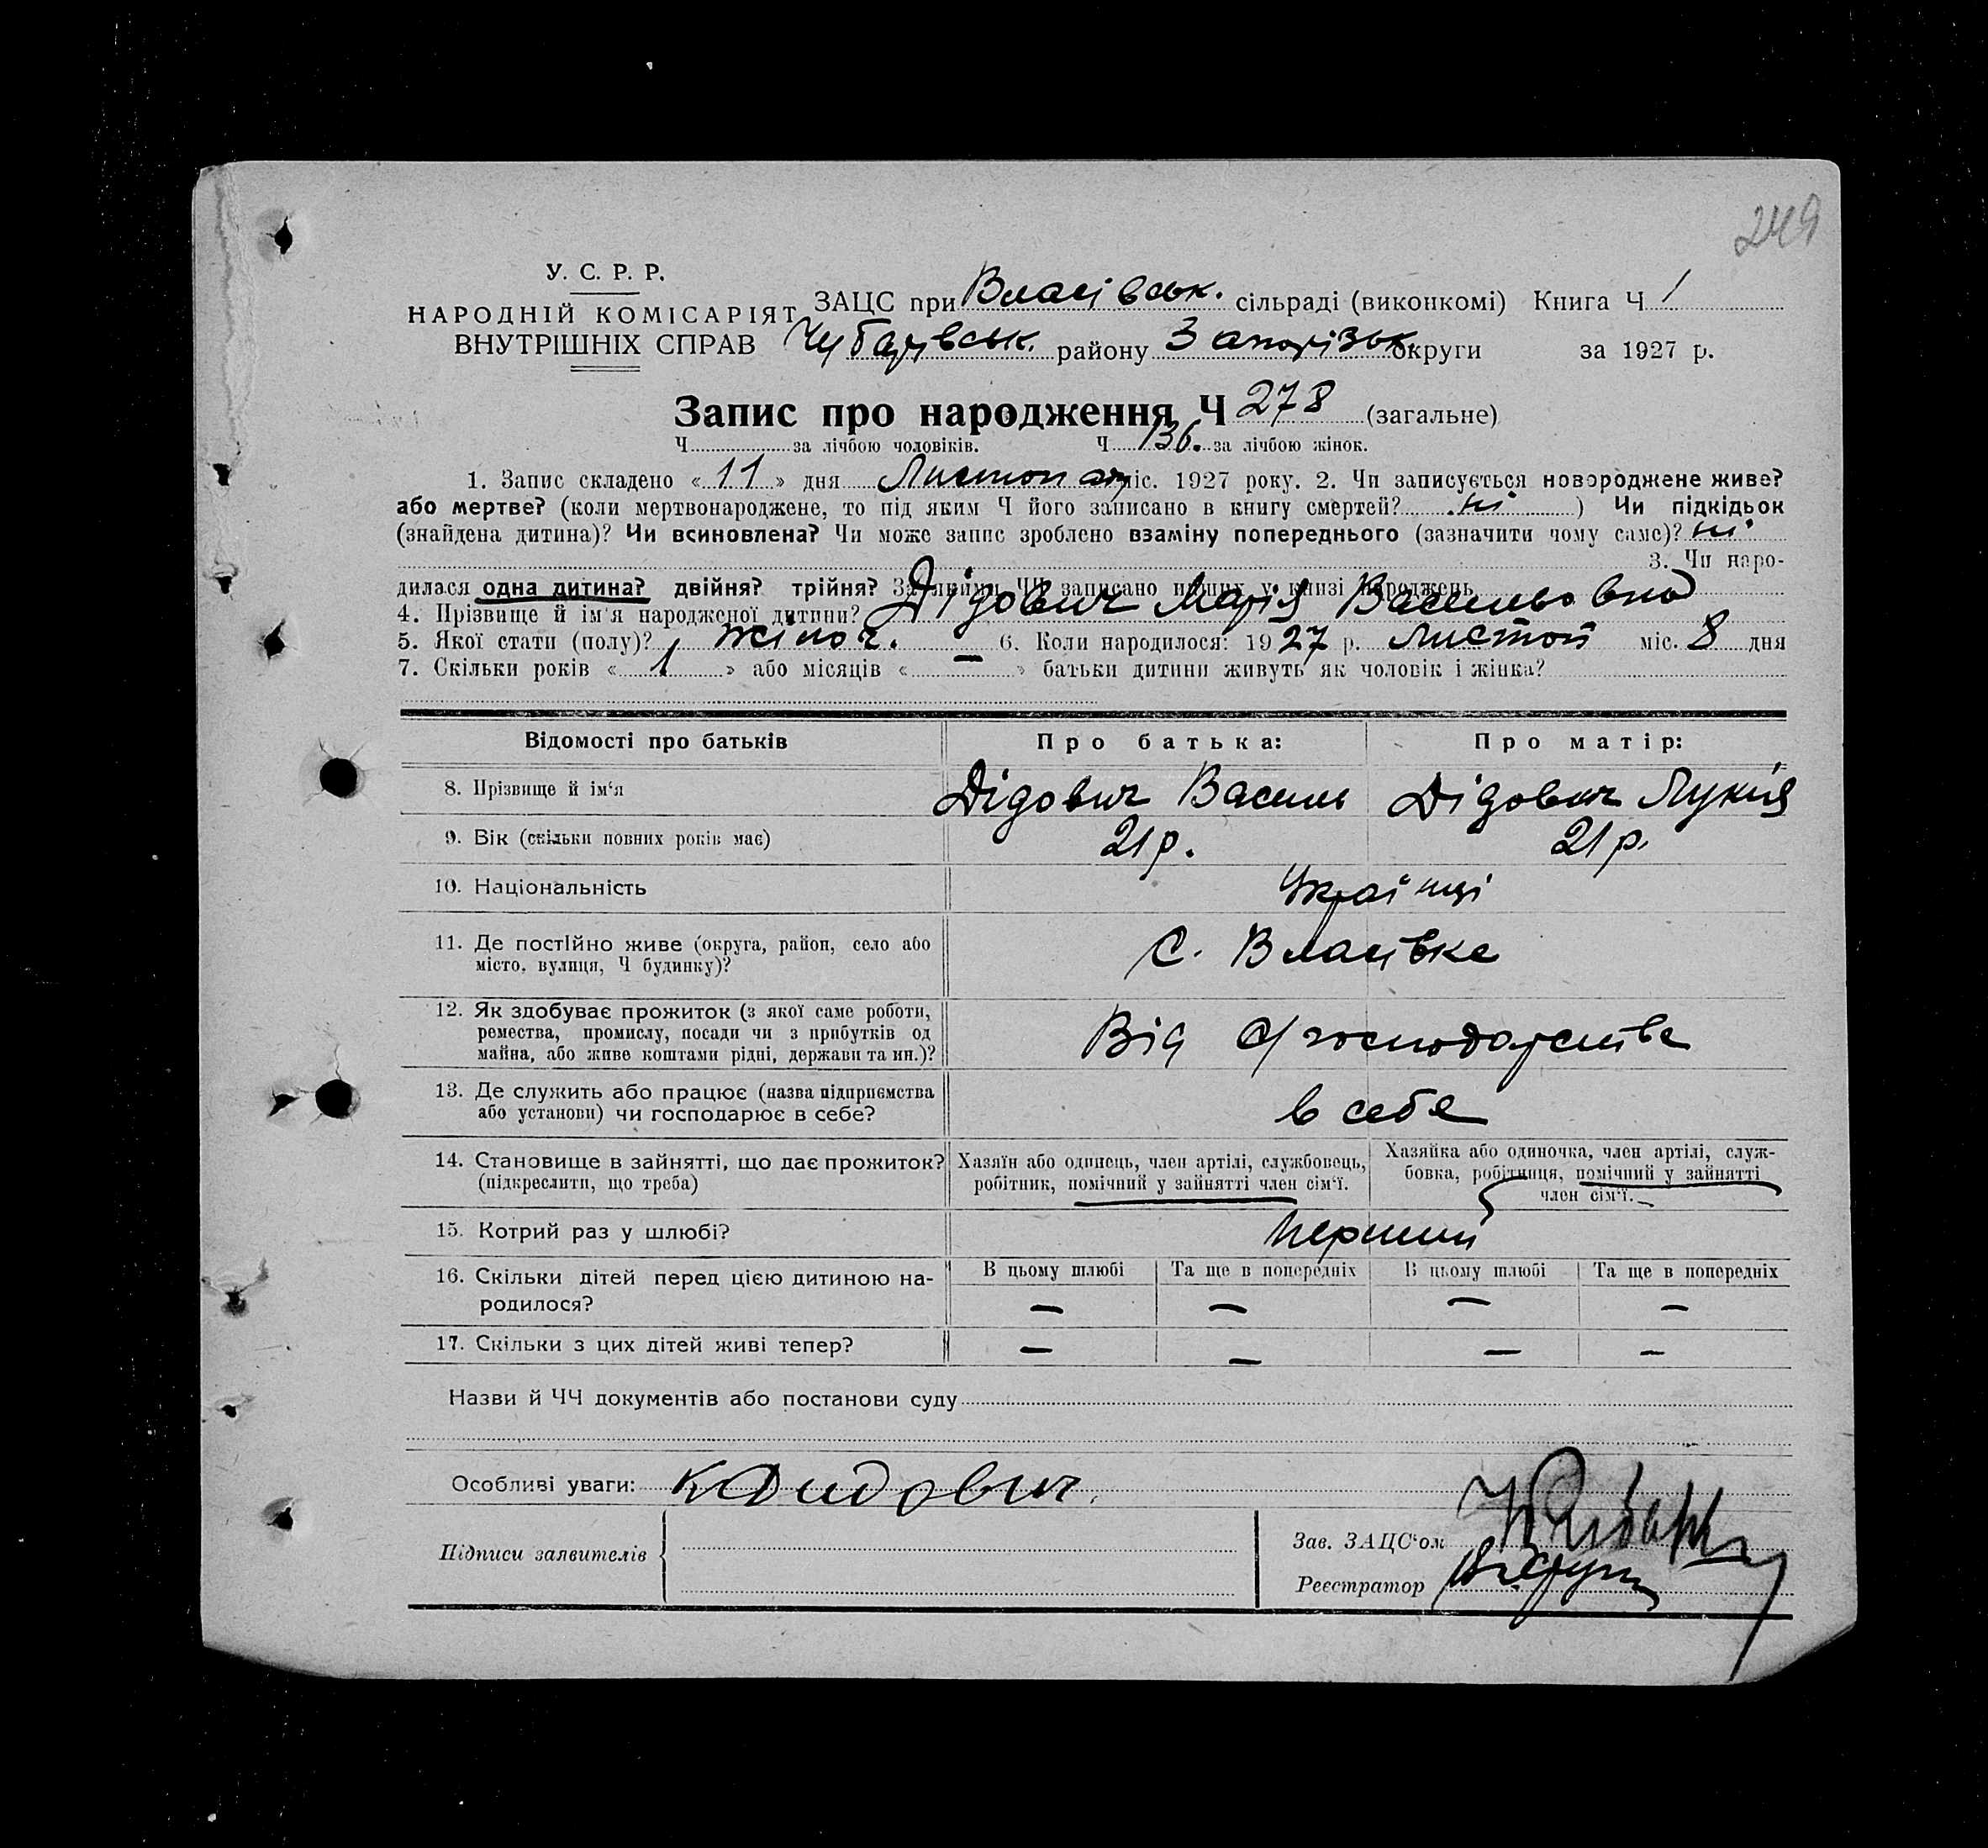 249
У. С. Р. Р.
НАРОДНІЙ КОМІСАРІЯТ
ВНУТРІШНІХ СПРАВ
ЗАЦС при Власівськ. сільраді (виконкомі) Книга Ч 1
Чубарівськ. району Запорізьк. округи за 1927 р.
Запис про народження Ч 278 (загальне)
Ч за лічбою чоловіків. Ч 136. за лічбою жінок.
1. Запис складено « 11 » дня Листопад міс. 1927 року. 2. Чи записується новороджене живе?
або мертве? (коли мертвонароджене, то під яким Ч його записано в книгу смертей? ні ) Чи підкідьок
(знайдена дитина)? Чи всиновлена? Чи може запис зроблено взаміну попереднього (зазначити чому саме)? ні
3. Чи наро-
дилася одна дитина? двійня? трійня? За якими ЧЧ записано инших у книзі народжень
4. Прізвище й ім'я народженої дитини? Дідович Марія Васильовна
5. Якої стати (полу)? жіноч. 6. Коли народилося: 1927 р. листоп міс. 8 дня
7. Скільки років « 1 » або місяців « — » батьки дитини живуть як чоловік і жінка?
Відомості про батьків Про батька: Про матір:
8. Прізвище й ім'я Дідович Василь Дідович Лукія
9. Вік (скільки повних років має) 21 р. 21 р.
10. Національність Українці
11. Де постійно живе (округа, район, село або
місто, вулиця, Ч будинку)? С. Власівка
12. Як здобуває прожиток (з якої саме роботи,
ремества, промислу, посади чи з прибутків од
майна, або живе коштами рідні, держави та ин.)? Від с/господарства
13. Де служить або працює (назва підприємства
або установи) чи господарює в себе? в себе
14. Становище в зайнятті, що дає прожиток?
(підкреслити, що треба)
Хазяїн або одинець, член артілі, службовець,
робітник, помічний у зайнятті член сім'ї.
Хазяйка або одиночка, член артілі, служ-
бовка, робітниця, помічний у зайнятті
член сім'ї.
15. Котрий раз у шлюбі? перший
16. Скільки дітей перед цією дитиною на-
родилося?
В цьому шлюбі Та ще в попередніх В цьому шлюбі Та ще в попередніх
— — — —
17. Скільки з цих дітей живі тепер? — — — —
Назви й ЧЧ документів або постанови суду
Особливі уваги: К Дидович.
Підписи заявителів
Зав. ЗАЦС'ом
Реєстратор